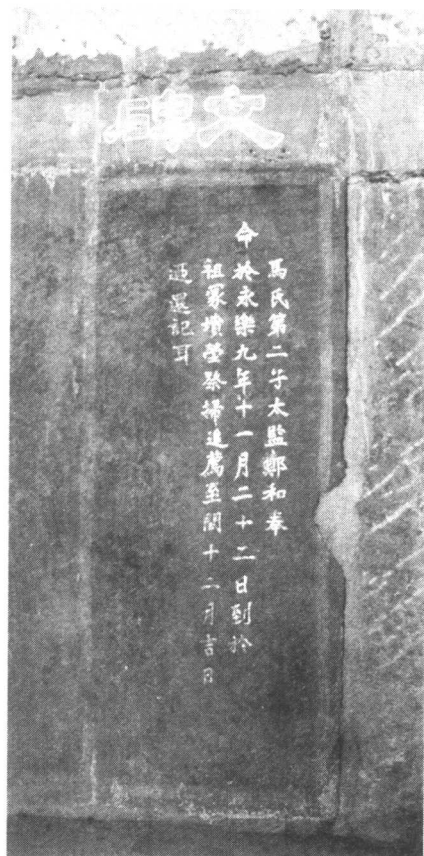 文
馬氏第二子太監鄭和奉
命於永樂九年十一月二十二日到於
祖冢墳塋祭掃追薦至閏十二月吉日
迺還記耳